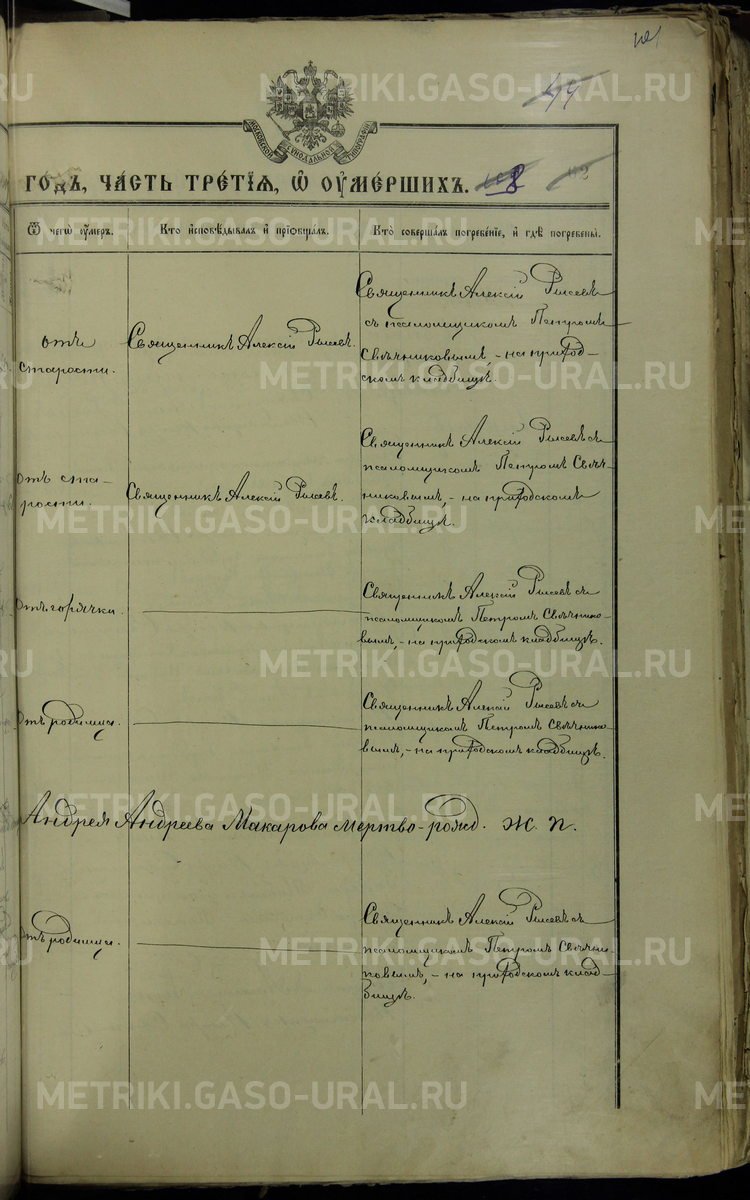 METRIKI.GASO-URAL.RU
44
МОСКОВСКОЙ СѴНОДАЛЬНОЙ ТИПОГРАФІИ
ГОДЪ, ЧАСТЬ ТРЕТІЯ, Ѡ ОУМЕРШИХЪ.
8
Ѿ чегѡ оумеръ.
Кто исповѣдывалъ и пріобщалъ.
Кто совершалъ погребеніе, и гдѣ погребены.
отъ
старости.
Священникъ Алексій
Священникъ Алексій
съ псаломщикомъ Петромъ
Свѣчниковымъ, - на приход-
скомъ кладбищѣ.
отъ ста-
рости.
Священникъ Алексій
Священникъ Алексій съ
псаломщикомъ Петромъ Свѣч-
никовымъ, - на приходскомъ
кладбищѣ.
отъ горячки.
Священникъ Алексій съ
псаломщикомъ Петромъ Свѣчнико-
вымъ, - на приходскомъ кладбищѣ.
отъ родимца.
Священникъ Алексій съ
псаломщикомъ Петромъ Свѣчнико-
вымъ, - на приходскомъ кладбищѣ.
Андрея Андреева Макарова мертво-рожд. ж. п.
отъ родимца.
Священникъ Алексій съ
псаломщикомъ Петромъ Свѣчни-
ковымъ, - на приходскомъ клад-
бищѣ.